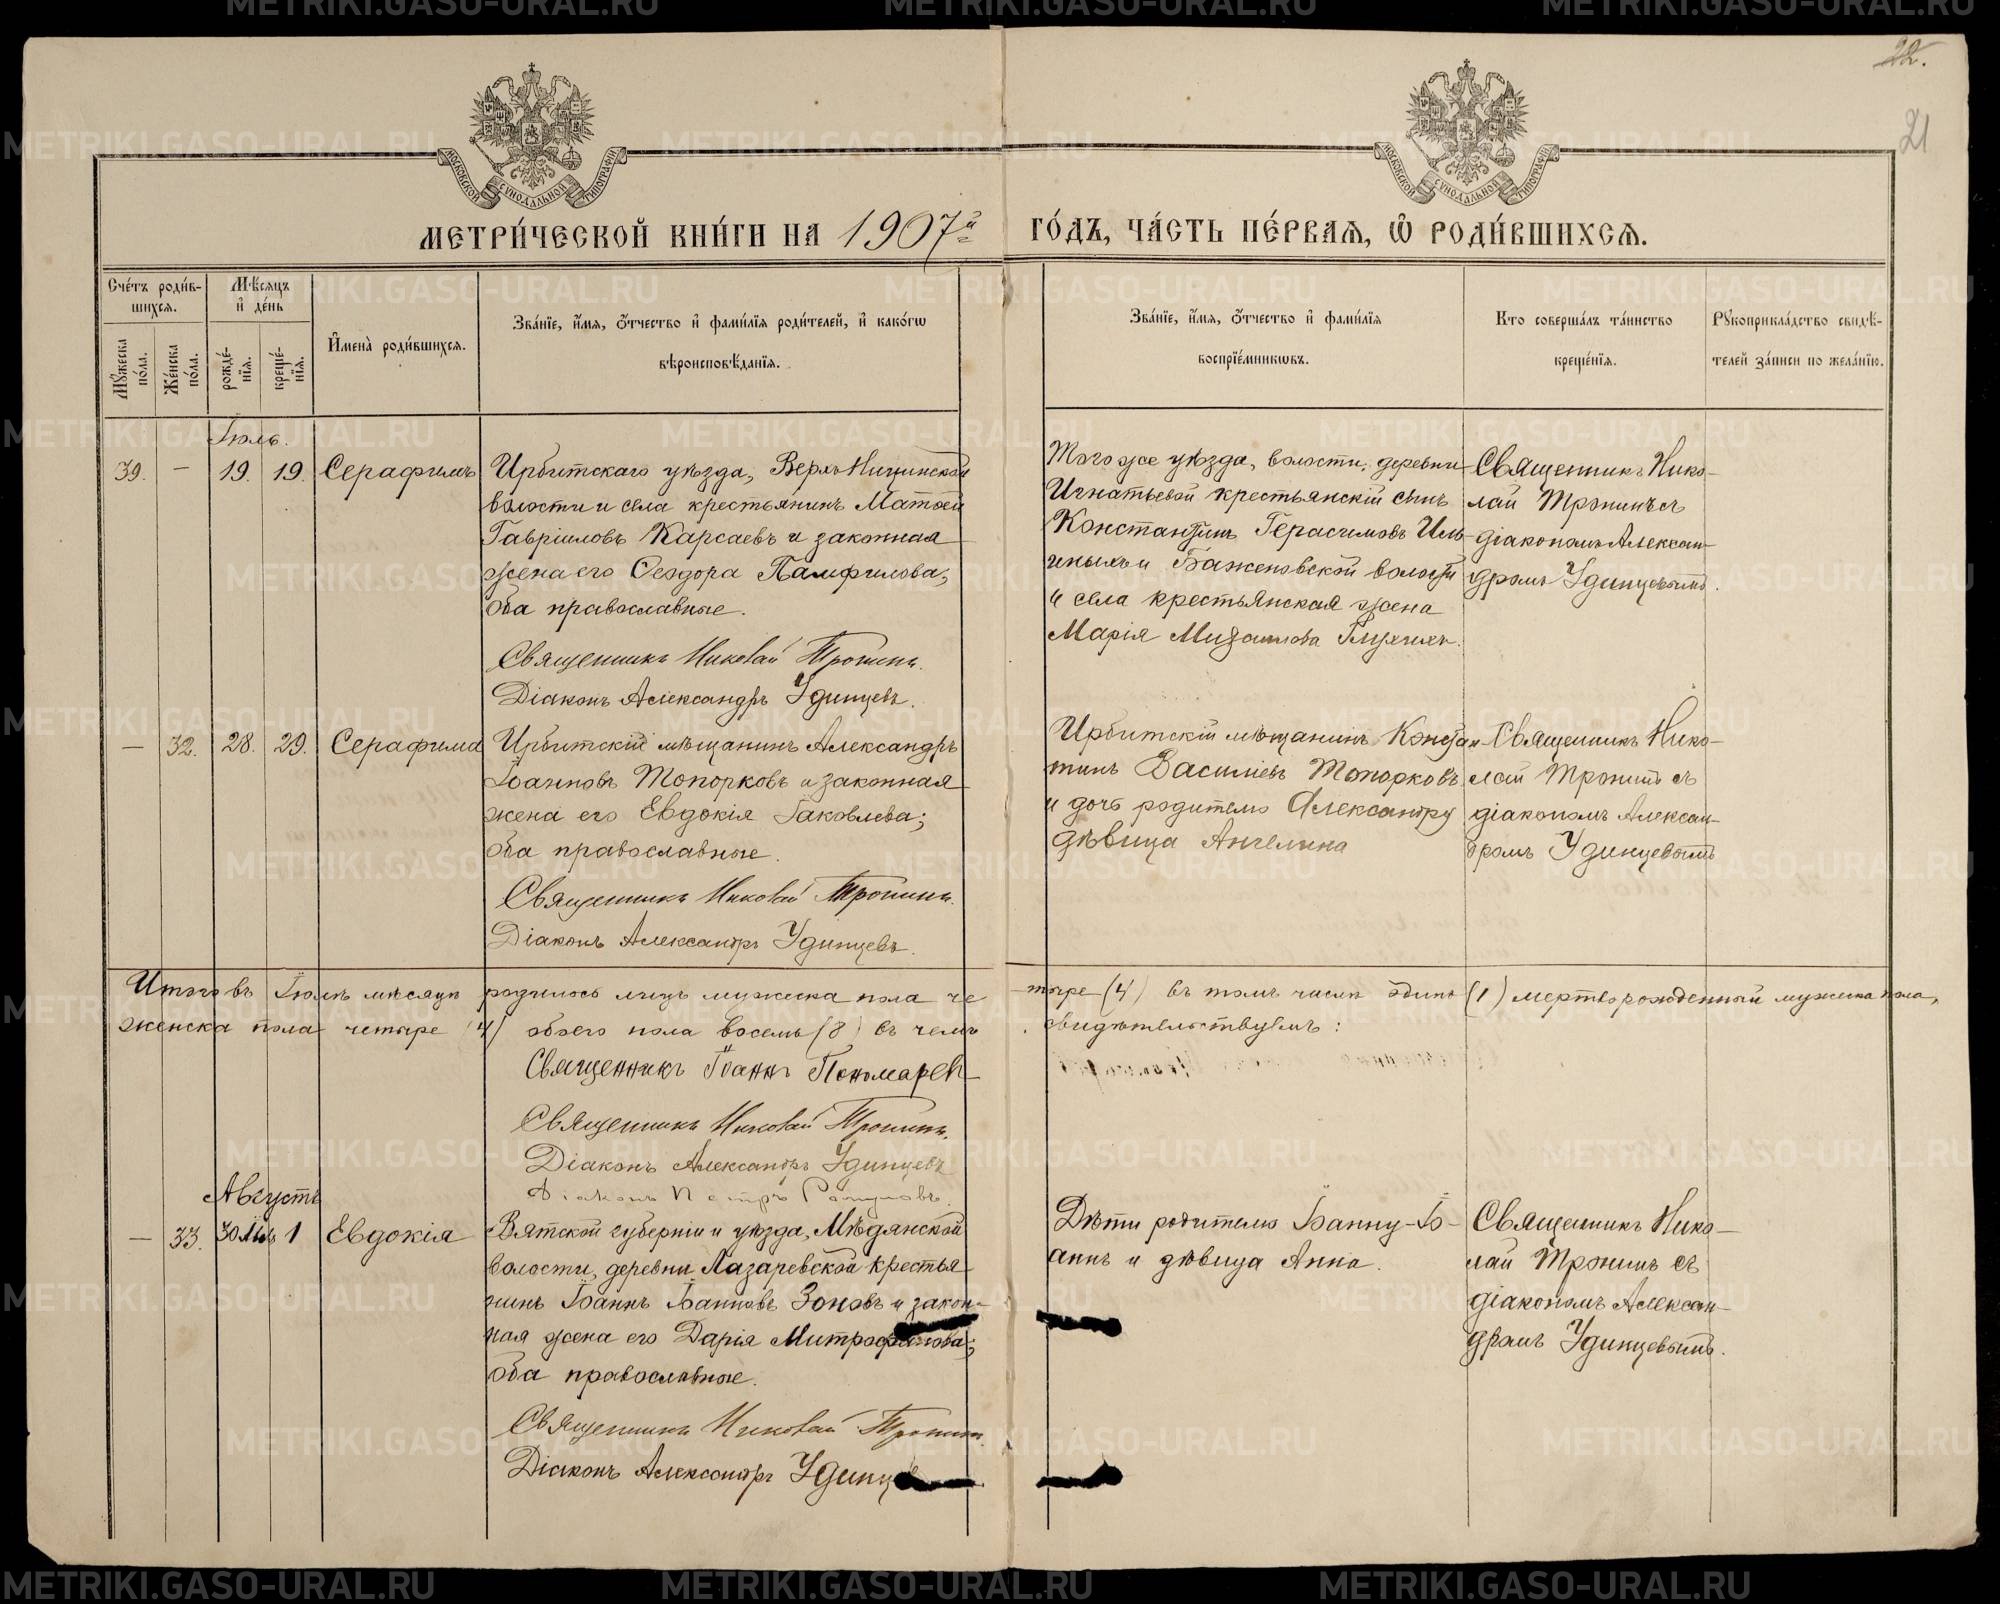 22.
21
МОСКОВСКОЙ СѴНОДАЛЬНОЙ ТИПОГРАФІИ
МОСКОВСКОЙ СѴНОДАЛЬНОЙ ТИПОГРАФІИ
МЕТРИ́ЧЕСКОЙ КНИ́ГИ НА 1907й
ГО́ДЪ, ЧА́СТЬ ПЕ́РВАЯ, Ѡ РОДИ́ВШИХСЯ.
Сче́тъ роди́в-
шихся.
Мѣ́сяцъ
и де́нь
Мꙋ́жеска по́ла.
Же́нска по́ла.
рожде́-
нїя.
креще́-
нїя.
И҆мена̀ роди́вшихся.
Зва́нїе, и҆́мя, ѻ҆́тчество и҆ фами́лїя роди́телей, и҆ како́гѡ
вѣроисповѣ́данїя.
Зва́нїе, и҆́мя, ѻ҆́тчество и҆ фами́лїя
воспрїе́мникѡвъ.
Кто̀ соверша́лъ та́инство
креще́нїя.
Рꙋкоприкла́дство свидѣ́-
телей за́писи по жела́нїю.
Іюль.
39. — 19. 19. Серафимъ
Ирбитскаго уѣзда, Верхъ Ницинской
волости и села крестьянинъ Матѳей
Гавріиловъ Карсаевъ и законная
жена его Ѳеодора Памфилова,
оба православные.
Священникъ Николай Тронинъ.
Діаконъ Александръ Удинцевъ.
Того же уѣзда, волости, деревни
Игнатьевой крестьянскій сынъ
Константинъ Герасимовъ Иль-
иныхъ и Баженовской волости
и села крестьянская жена
Марія Михаилова Глухихъ.
Священникъ Нико-
лай Тронинъ съ
діакономъ Алексан-
дромъ Удинцевымъ.
— 32. 28. 29. Серафима
Ирбитскій мѣщанинъ Александръ
Іоанновъ Топорковъ и законная
жена его Евдокія Іаковлева;
оба православные.
Священникъ Николай Тронинъ.
Діаконъ Александръ Удинцевъ.
Ирбитскій мѣщанинъ Констан-
тинъ Василіевъ Топорковъ
и дочь родителю Александру
дѣвица Ангелина
Священникъ Нико-
лай Тронинъ съ
діакономъ Алексан-
дромъ Удинцевымъ
Итого въ Іюлѣ мѣсяцѣ родилось лицъ мужеска пола че-
тыре (4) въ томъ числѣ одинъ (1) мертворожденный мужеска пола,
женска пола четыре (4) обоего пола восемь (8) въ чемъ
свидѣтельствуемъ:
Священникъ Іоаннъ Пономаревъ
Священникъ Николай Тронинъ.
Діаконъ Александръ Удинцевъ
Діаконъ Петръ
Августъ
— 33. 30 1 Евдокія
Вятской губерніи и уѣзда, Мѣдянской
волости, деревни Лазаревской крестья-
нинъ Іоаннъ Іоанновъ Зоновъ и закон-
ная жена его Дарія Митрофанова;
оба православные.
Священникъ Николай Тронинъ.
Діаконъ Александръ Удинцевъ
Дѣти родителю Іоанну-Іо-
аннъ и дѣвица Анна.
Священникъ Нико-
лай Тронинъ съ
діакономъ Алексан-
дромъ Удинцевымъ.
METRIKI.GASO-URAL.RU